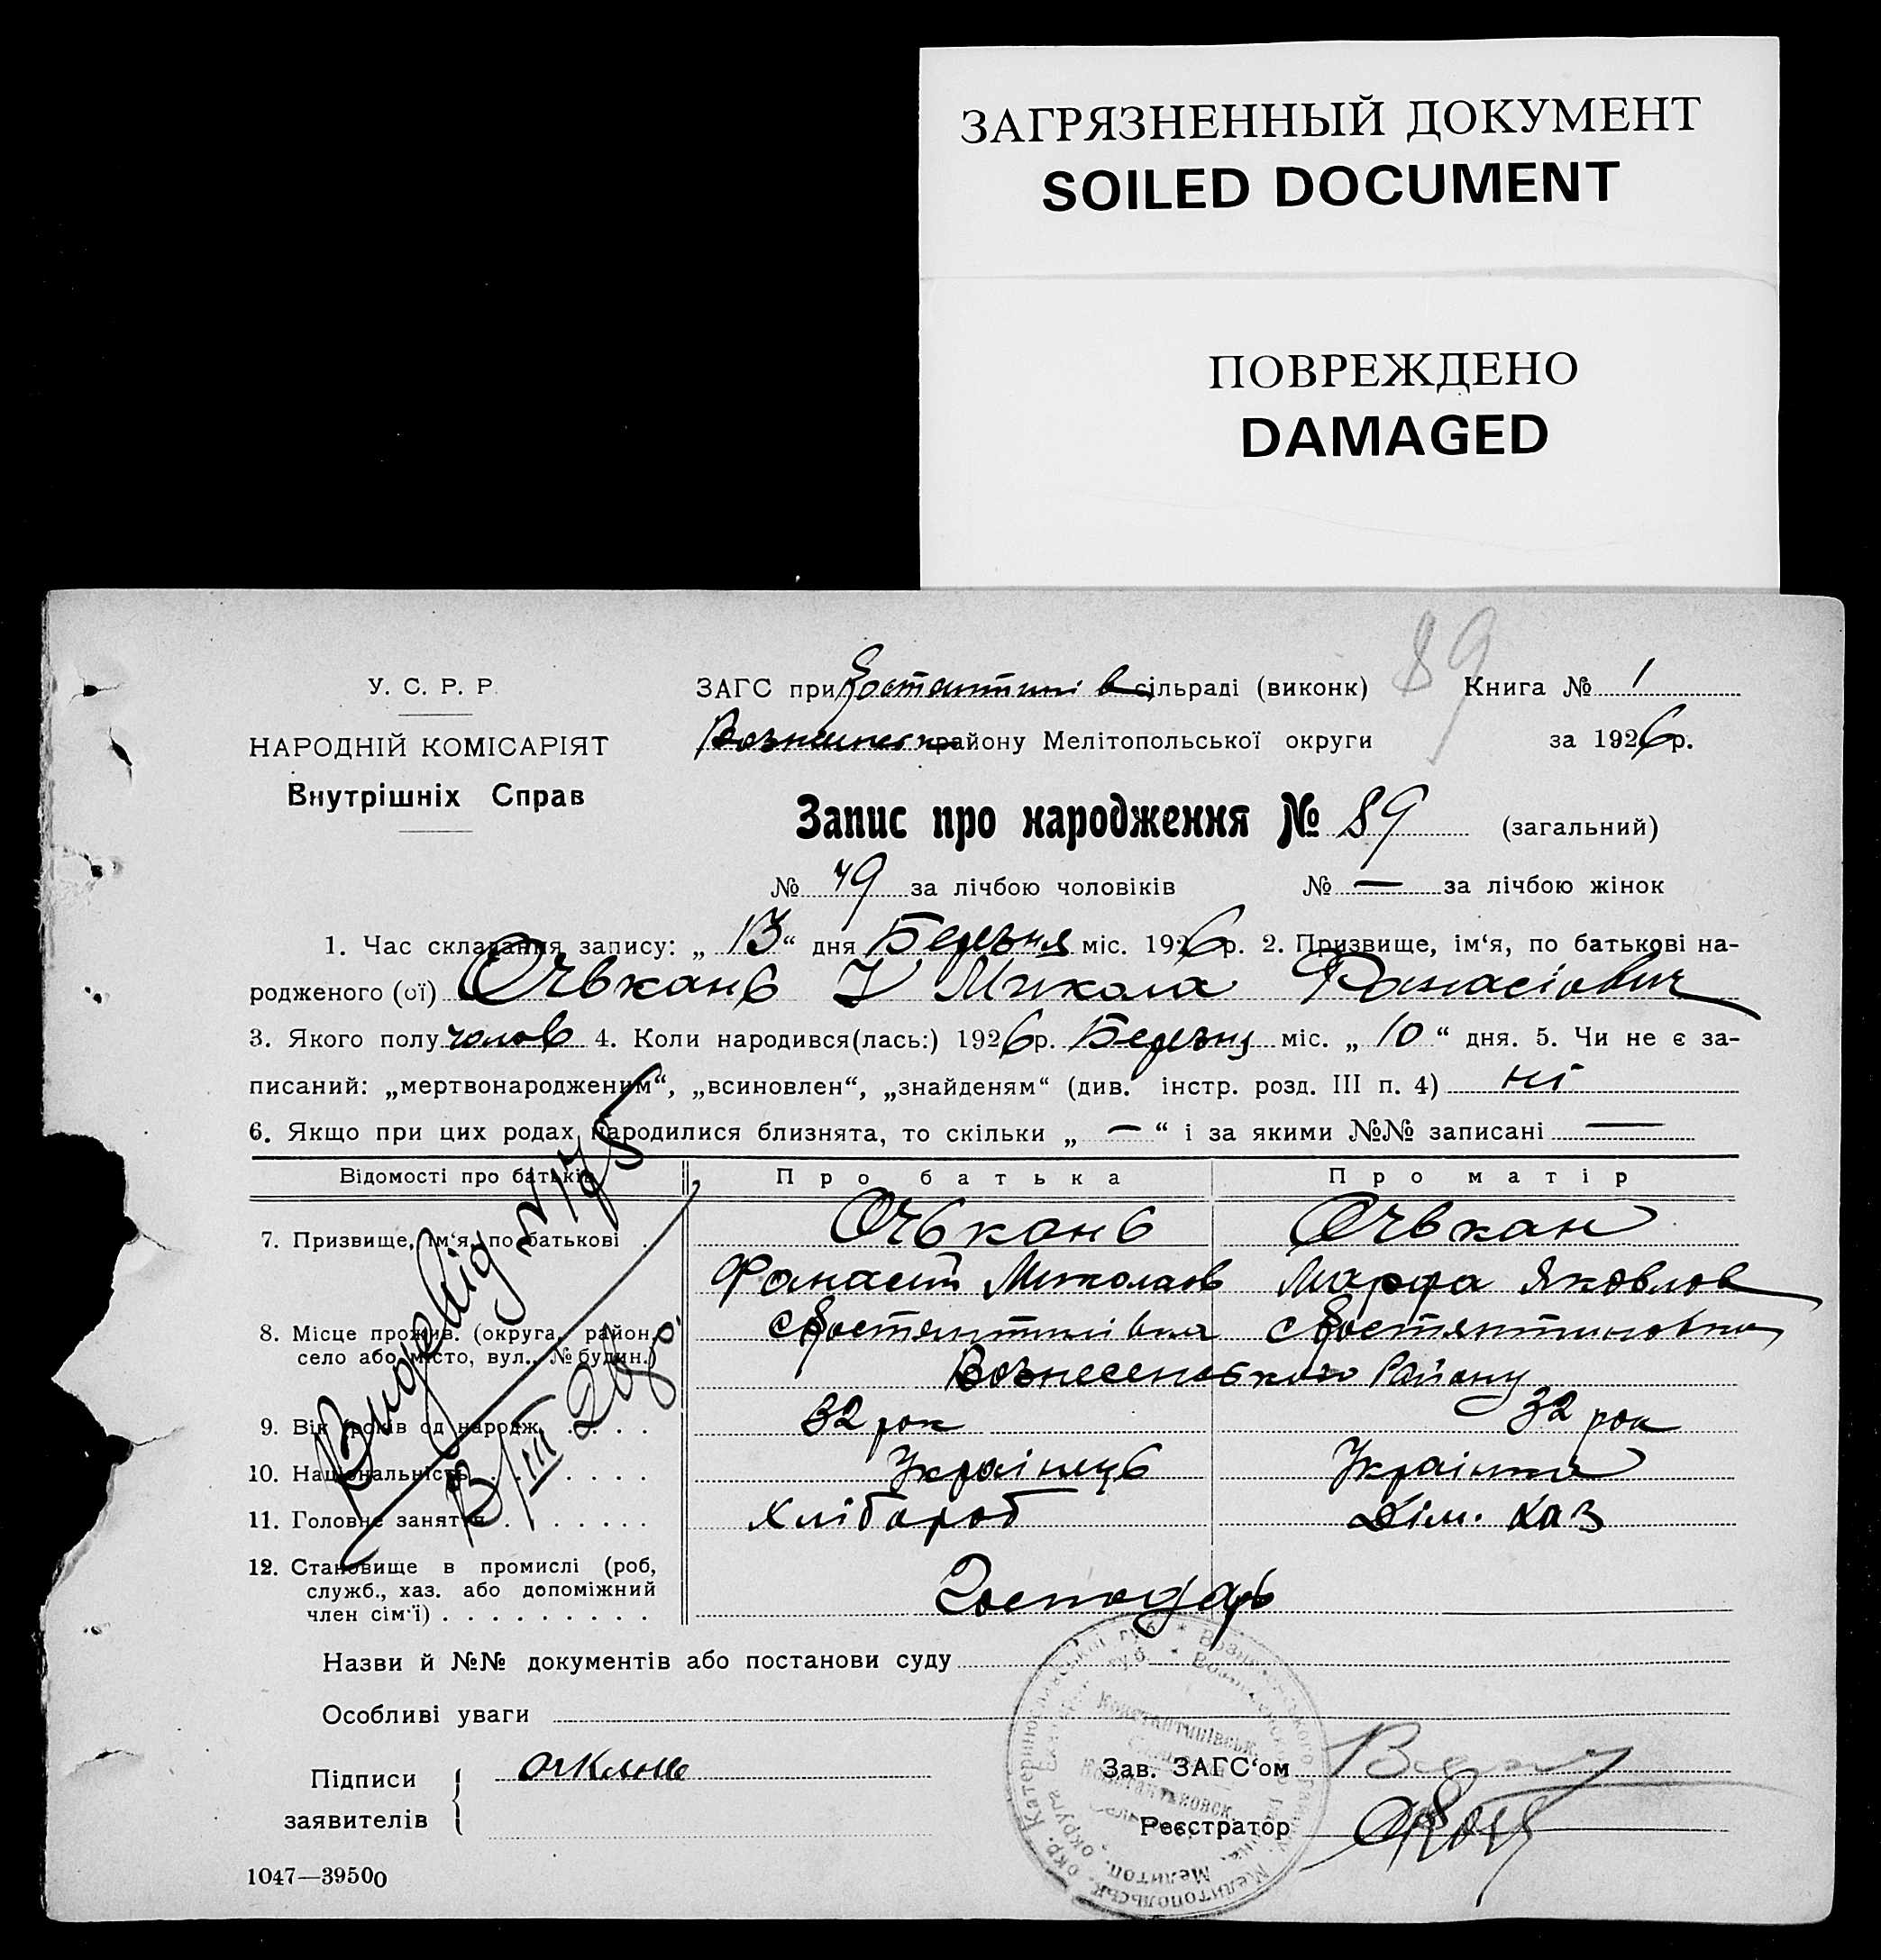 ЗАГРЯЗНЕННЫЙ ДОКУМЕНТ
SOILED DOCUMENT
ПОВРЕЖДЕНО
DAMAGED
89
У. С. Р. Р.
НАРОДНІЙ КОМІСАРІЯТ
Внутрішніх Справ
ЗАГС при сільраді (виконк)
Книга № 1
району Мелітопольської округи
за 1926р.
Запис про народження № 89 (загальний)
№ 49 за лічбою чоловіків № — за лічбою жінок
1. Час складання запису: „ 13 “ дня Березня міс. 1926р. 2. Призвище, ім‘я, по батькові на-
родженого (ої) Очвкань Микола Фанасіович
3. Якого полу чолов 4. Коли народився(лась:) 1926р. Березня міс. „ 10 “ дня. 5. Чи не є за-
писаний: „мертвонародженим“, „всиновлен“, „знайденям“ (див. інстр. розд. III п. 4) ні
6. Якщо при цих родах народилися близнята, то скільки „ — “ і за якими №№ записані —
Відомості про батьків Про батька Про матір
7. Призвище, ім‘я, по батькові Очвкань Очвкан
Фанасий Миколаєв Марфа Яковлев
8. Місце прожив. (округа, район,
село або місто, вул., № будин.)
Вознесенського Району
9. Вік (років од народж. 32 рок 32 рок
10. Національність Українець Українка
11. Головне заняття Хлібороб Дім. Хаз
12. Становище в промислі (роб,
служб., хаз. або допоміжний
член сім‘ї) Господарь
Видєвід № 178
13/III 26 р.
Назви й №№ документів або постанови суду
Особливі уваги
Підписи
заявителів
Зав. ЗАГС‘ом
Реєстратор
1047—39500